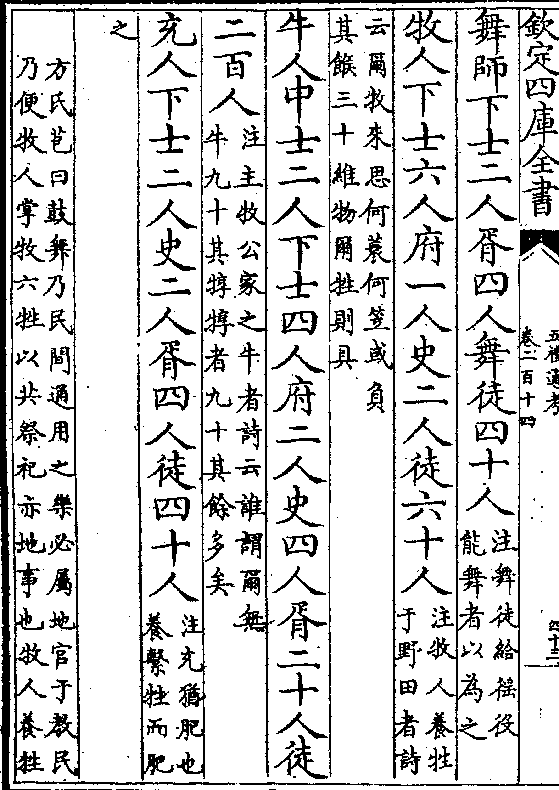 欽定四庫全書
五禮通考
卷二百十四
舞師下士二人胥四人舞徒四十人
注舞徒給徭役
能舞者以為之
牧人下士六人府一人史二人徒六十人
注牧人養牲
于野田者詩
云爾牧來思何蓑何笠或負
其餱三十維物爾牲則具
牛人中士二人下士四人府二人史四人胥二十人徒
二百人
注主牧公家之牛者詩云誰謂爾無
牛九十其犉犉者九十其餘多矣
充人下士二人史二人胥四人徒四十人
注充猶肥也
養繫牲而肥
之
方氏苞曰鼓舞乃民間通用之樂必屬地官于教民
乃便牧人掌牧六牲以共祭祀亦地事也牧人養牲